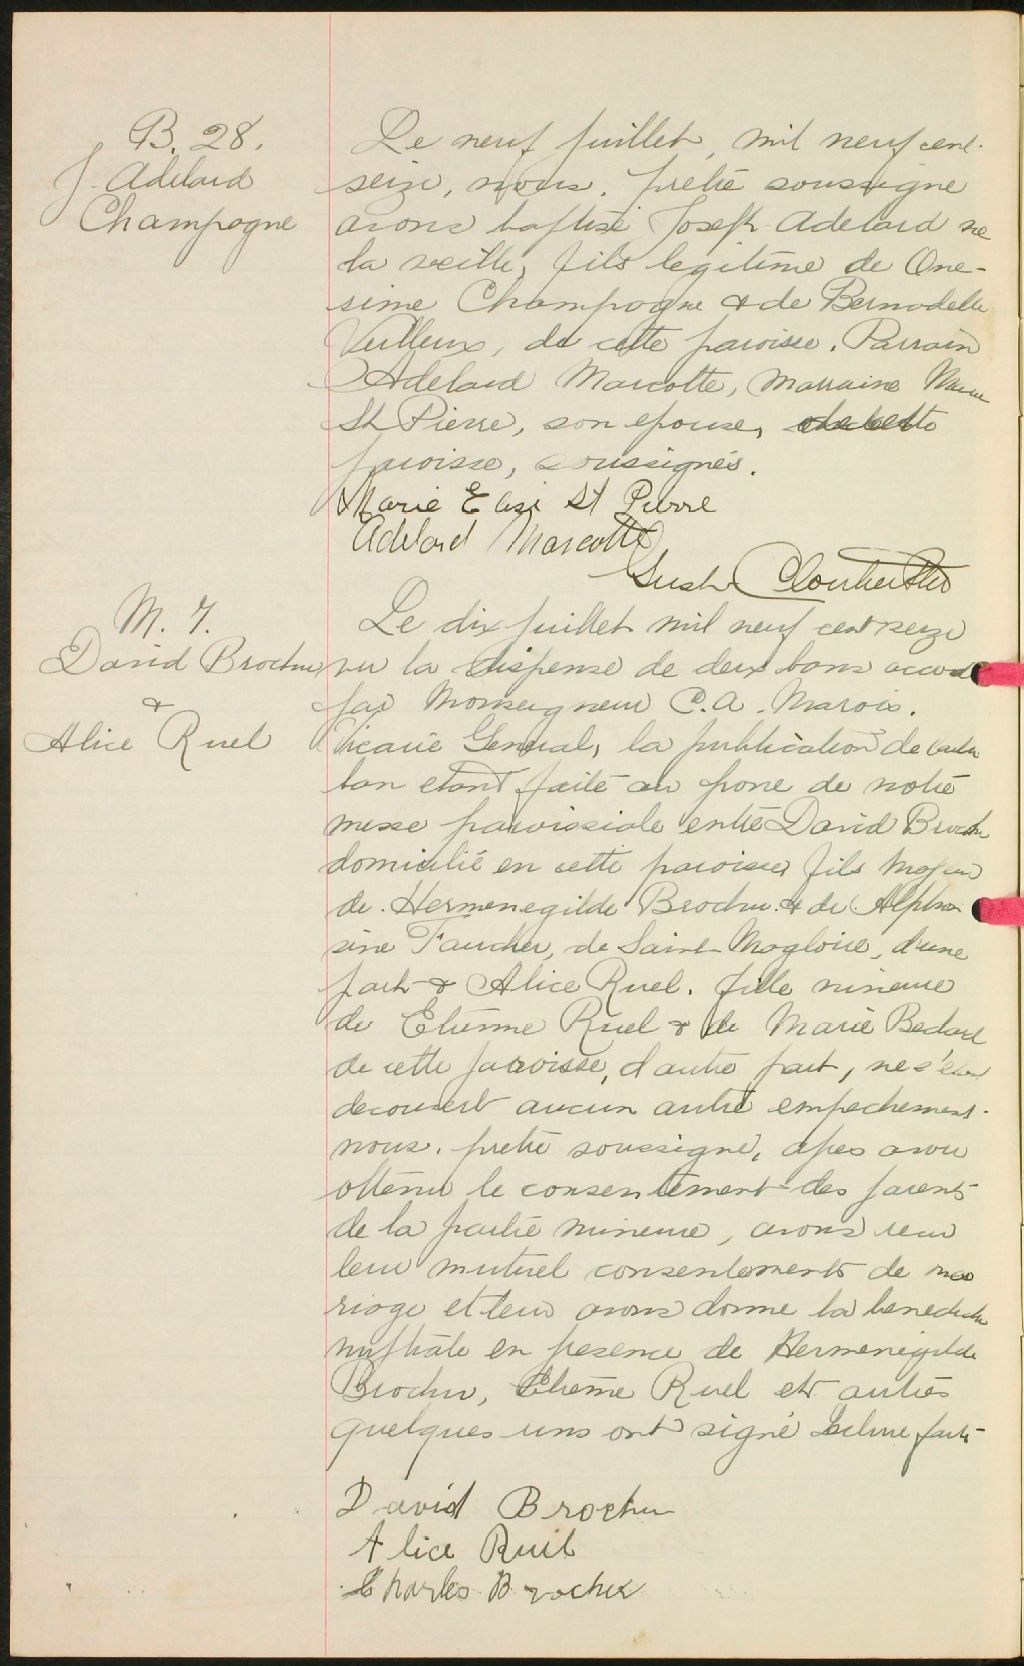 B. 28.
J. Adelard
Champagne
Le neuf juillet, mil neuf cent
seize, nous, prêtre soussigné
avons baptisé Joseph Adelard né
la veille, fils legitime de One-
sime Champagne & de Bernadette
Veilleux, de cette paroisse. Parrain
Adelard Marcotte, marraine Marie
St Pierre, son epouse, de cette
paroisse, soussignés.
Marie St Pierre
Adelard Marcotte
Cloutier Ptre
M. 7.
David Brochu
&
Alice Ruel
Le dix juillet mil neuf cent seize
vu la dispense de deux bans accordé
par Monseigneur C.A. Marois.
Vicaire General, la publication de
ban etant faite au prone de notre
messe paroissiale entre David Brochu
domicilié en cette paroisse, fils majeur
de Hermenegilde Brochu & de Alphon
sine Faucher, de Saint Magloire, d'une
part & Alice Ruel. fille mineure
de Etienne Ruel & de Marie Bedard
de cette paroisse, d'autre part, ne s'etant
decouvert aucun autre empechement
nous, prêtre soussigné, apres avoir
obtenu le consentement des parents
de la partie mineure, avons recu
leur mutuel consentements de ma
riage et leur avons donné la benediction
nuptiale en presence de Hermenegilde
Brochu, Etienne Ruel et autres
quelques uns ont signé Lecture faite
David Brochu
Alice Ruel
Charles Brochu